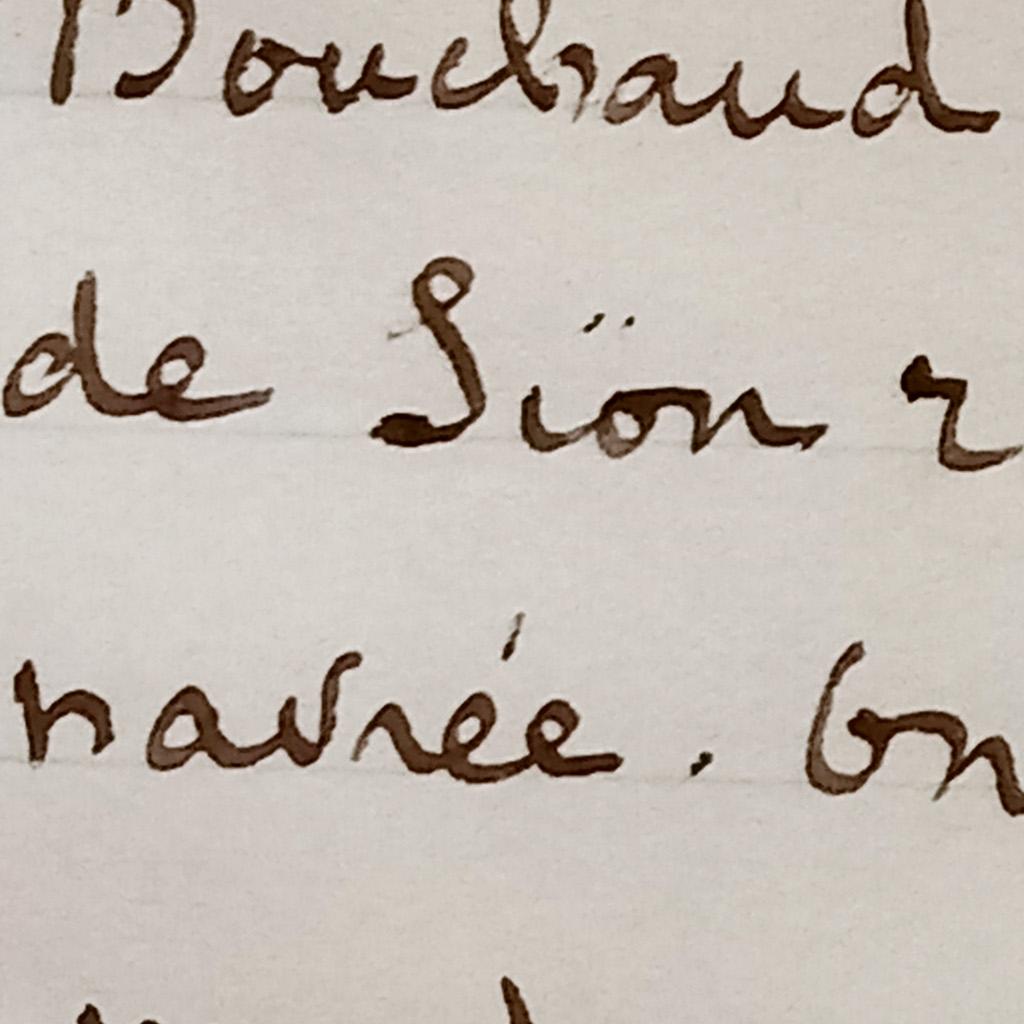 Bouchaud
de Sïon r
navrée. On